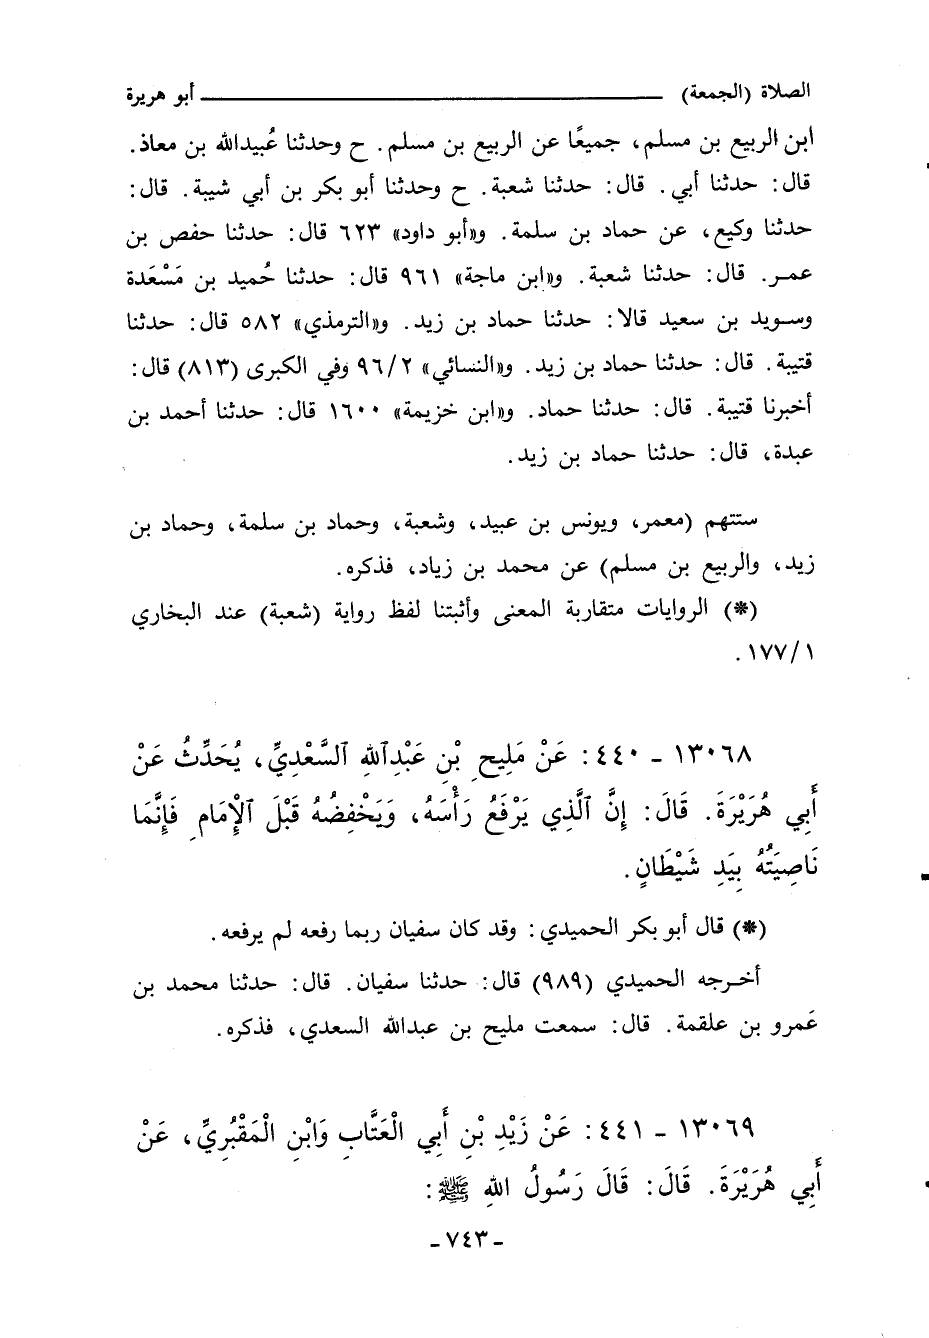 الصلاة (الجمعة) ــــــــــــــــــــ أبو هريرة
ابن الربيع بن مسلم، جميعًا عن الربيع بن مسلم. ح وحدثنا عُبيدالله بن معاذ.
قال: حدثنا أبي. قال: حدثنا شعبة. ح وحدثنا أبو بكر بن أبي شيبة. قال:
حدثنا وكيع، عن حماد بن سلمة. و«أبو داود» ٦٢٣ قال: حدثنا حفص بن
عمـر. قال: حدثنا شعبة. و«ابن ماجة» ٩٦١ قال: حدثنا حُميد بن مَسْعَدة
وسـويد بن سعيد قالا: حدثنا حماد بن زيد. و«الترمذي» ٥٨٢ قال: حدثنا
قتيبة. قال: حدثنا حماد بن زيد. و«النسائي» ٩٦/٢ وفي الكبرى (٨١٣) قال:
أخبرنا قتيبة. قال: حدثنا حماد. و«ابن خزيمة» ١٦٠٠ قال: حدثنا أحمد بن
عبدة، قال: حدثنا حماد بن زيد.
ستتهم (معمر، ويونس بن عبيد، وشعبة، وحماد بن سلمة، وحماد بن
زيد، والربيع بن مسلم) عن محمد بن زياد، فذكره.
(*) الروايات متقاربة المعنى وأثبتنا لفظ رواية (شعبة) عند البخاري
١٧٧/١.
١٣٠٦٨ - ٤٤٠: عَنْ مَلِيحِ بْنِ عَبْدِٱللهِ ٱلسَّعْدِيِّ، يُحَدِّثُ عَنْ
أَبِي هُرَيْرَةَ. قَالَ: إِنَّ ٱلَّذِي يَرْفَعُ رَأْسَهُ، وَيَخْفِضُهُ قَبْلَ ٱلْإِمَامِ فَإِنَّمَا
نَاصِيَتُهُ بِيَدِ شَيْطَانٍ.
(*) قال أبو بكر الحميدي: وقد كان سفيان ربما رفعه لم يرفعه.
أخـرجه الحميدي (٩٨٩) قال: حدثنا سفيان. قال: حدثنا محمد بن
عَمرو بن علقمة. قال: سمعت مليح بن عبدالله السعدي، فذكره.
١٣٠٦٩ - ٤٤١: عَنْ زَيْدِ بْنِ أَبِي الْعَتَّابِ وَابْنِ الْمَقْبُرِيِّ، عَنْ
أَبِي هُرَيْرَةَ. قَالَ: قَالَ رَسُولُ اللهِ ﷺ:
- ٧٤٣ -